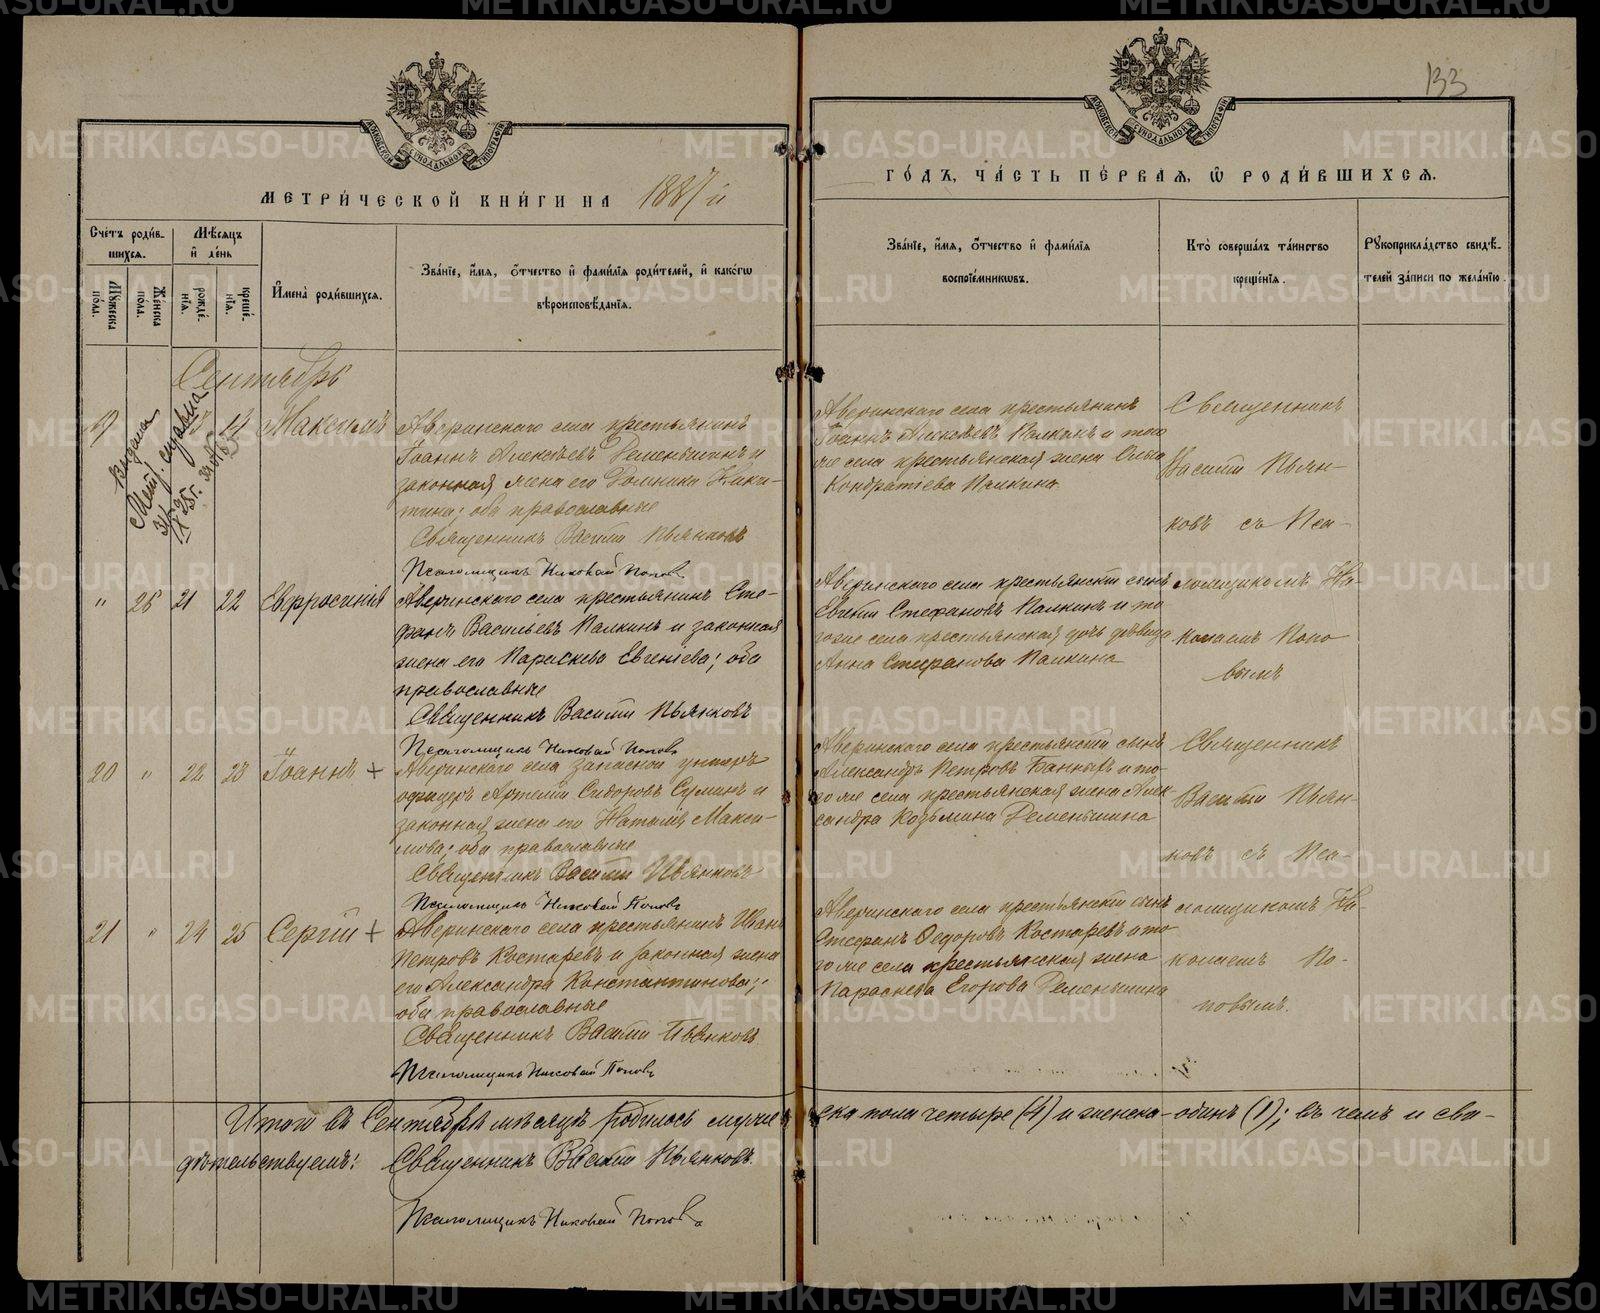 133
МОСКОВСКОЙ СѴНОДАЛЬНОЙ ТИПОГРАФІИ
МОСКОВСКОЙ СѴНОДАЛЬНОЙ ТИПОГРАФІИ
МЕТРИ́ЧЕСКОЙ КНИ́ГИ НА 1887 й
ГО́ДЪ, ЧА́СТЬ ПЕ́РВАЯ, Ѡ҆ РОДИ́ВШИХСЯ.
Сче́тъ роди́в-
шихся.
Му́жеска
по́ла.
Же́нска
по́ла.
Мѣ́сяцъ
и҆ де́нь
рожде́-
нїя.
креще́-
нїя.
И҆мена̀ роди́вшихся.
Зва́нїе, и҆́мя, ѻ҆́тчество и҆ фами́лїя роди́телей, и҆ како́гѡ
вѣроисповѣ́данїя.
Зва́нїе, и҆́мя, ѻ҆́тчество и҆ фами́лїя
воспрїе́мникѡвъ.
Кто̀ соверша́лъ та́инство
креще́нїя.
Рꙋкоприкла́дство свидѣ́-
телей за́писи по жела́нїю.
Сентябрь
Выдана
Мет. справка
19
14
Максимъ
Аверинскаго села крестьянинъ
Іоаннъ Алексѣевъ Деменьшинъ и
законная жена его Домника Ники-
тина; оба православные
Священникъ Василій Пьянковъ
Псаломщикъ Николай Поповъ
Аверинскаго села крестьянинъ
Іоаннъ Алексѣевъ Палкинъ и того
же села крестьянская жена
Кондратіева Палкина
Священникъ
Василій Пьян-
ковъ съ Пса-
ломщикомъ Ни-
колаемъ Попо
вымъ
" 25 21 22 Евфросинія
Аверинскаго села крестьянинъ Сте-
фанъ Васильевъ Палкинъ и законная
жена его Параскева Евгеніева; оба
православные
Священникъ Василій Пьянковъ
Псаломщикъ Николай Поповъ
Аверинскаго села крестьянскій сынъ
Евгеній Стефановъ Палкинъ и то
гоже села крестьянская дочь дѣвица
Анна Стефанова Палкина
20 " 22 23 Іоаннъ +
Аверинскаго села запасной унтеръ
офицеръ Артемій Сидоровъ Суминъ и
законная жена его Наталія Макси-
мова; оба православные
Священникъ Василій Пьянковъ
Псаломщикъ Николай Поповъ
Аверинскаго села крестьянскій сынъ
Александръ Петровъ Банныхъ и то
го же села крестьянская жена Алек-
сандра Козьмина Деменьшина
Священникъ
Василій Пьян-
ковъ съ Пса-
ломщикомъ Ни-
колаемъ По-
повымъ.
21 " 24 25 Сергій +
Аверинскаго села крестьянинъ Иванъ
Петровъ Костаревъ и законная жена
его Александра Константинова;
оба православные
Священникъ Василій Пьянковъ
Псаломщикъ Николай Поповъ
Аверинскаго села крестьянскій сынъ
Стефанъ Ѳедоровъ Костаревъ и то
го же села крестьянская жена
Параскева Егорова Деменьшина
Итого въ Сентябрѣ мѣсяцѣ родилось муже ска пола четыре (4) и женска-одинъ (1); въ чемъ и сви-
дѣтельствуемъ: Священникъ Василій Пьянковъ.
Псаломщикъ Николай Поповъ
METRIKI.GASO-URAL.RU